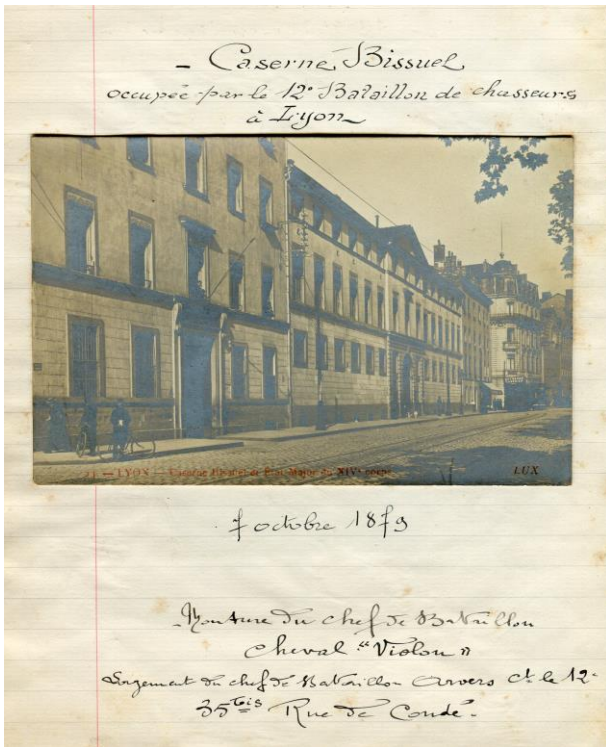 - Caserne Bissuel
occupée par le 12e Bataillon de chasseurs
à Lyon
— LYON — Caserne Bissuel et État-Major du XIVe corps
LUX
7 octobre 1879
Monture du chef de Bataillon
Cheval "Violon"
Logement du chef de Bataillon Arvers Ct le 12e
35bis Rue de Condé.